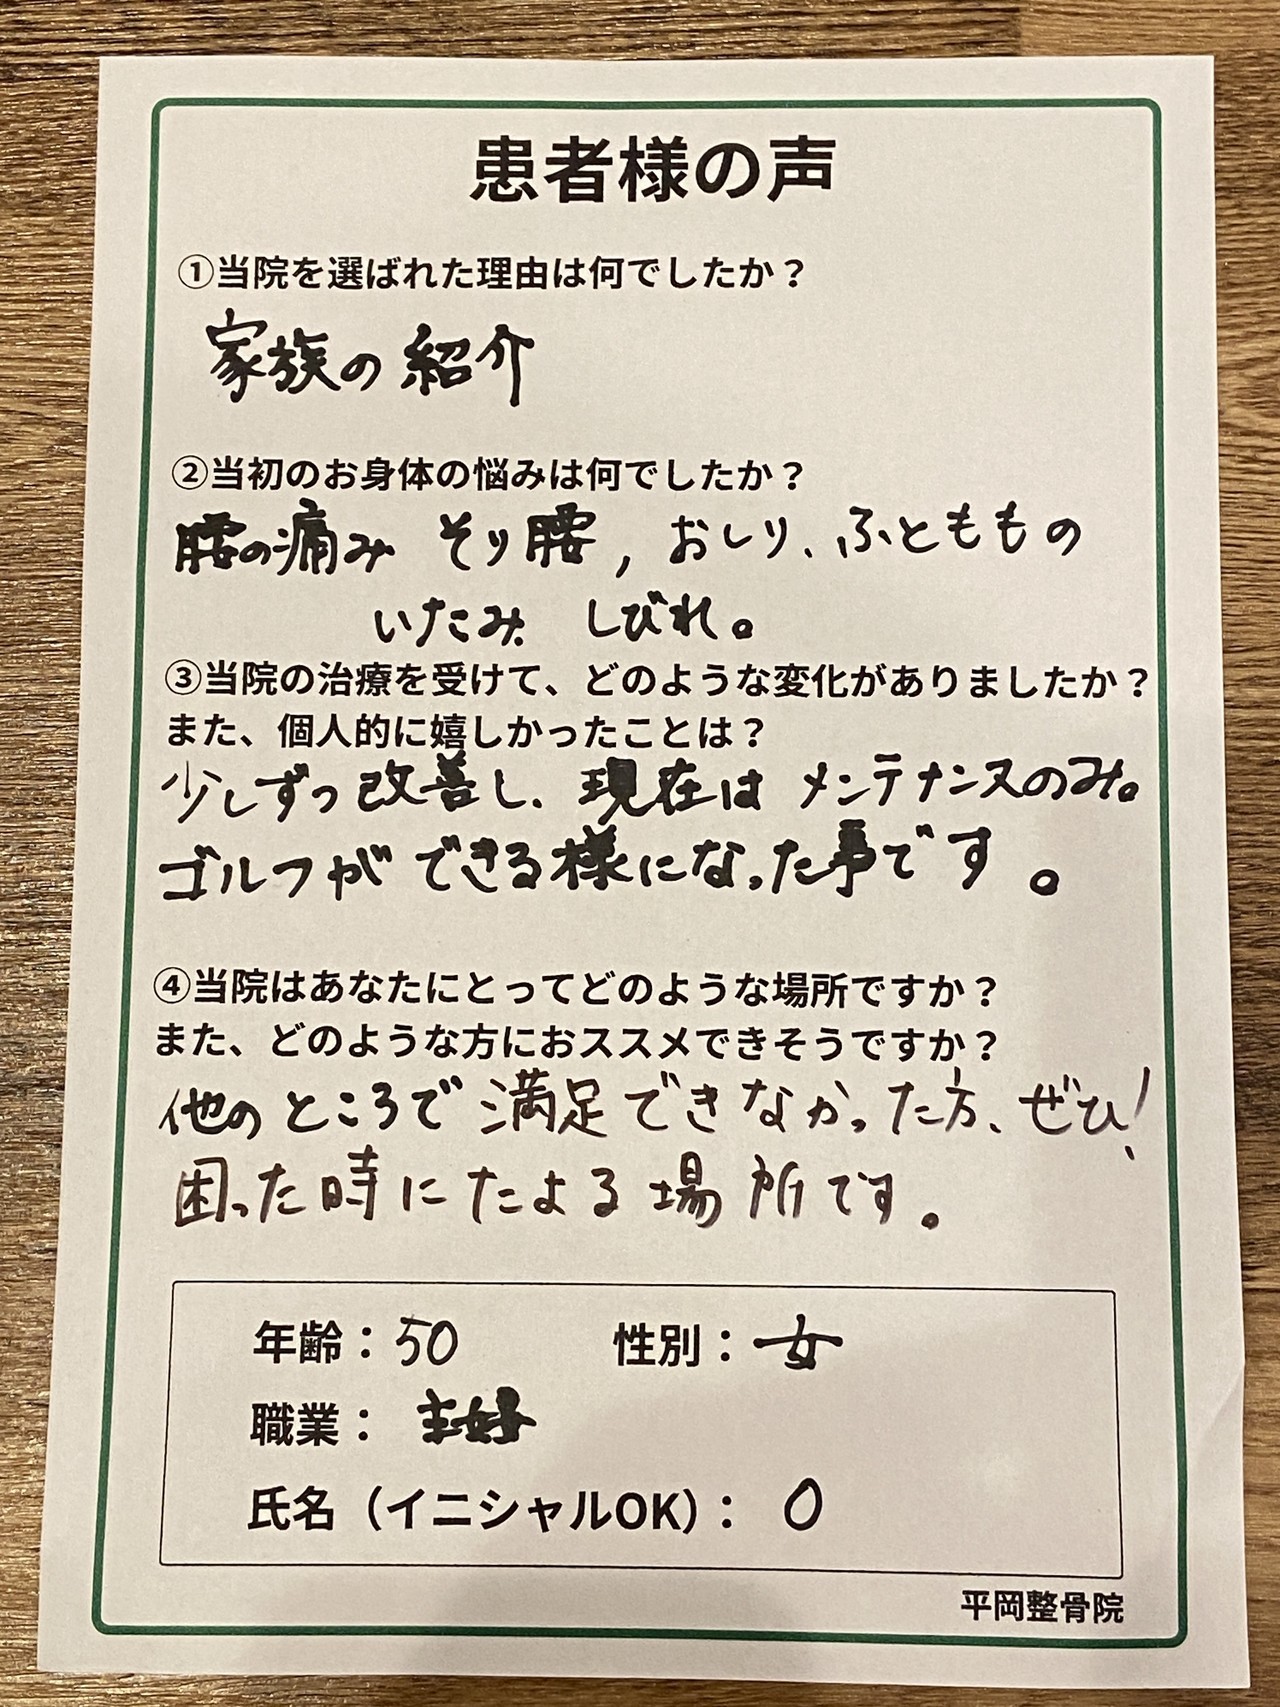 患者様の声
①当院を選ばれた理由は何でしたか？
家族の紹介
②当初のお身体の悩みは何でしたか？
腰の痛み そり腰, おしり、ふとももの
いたみ しびれ。
③当院の治療を受けて、どのような変化がありましたか？
また、個人的に嬉しかったことは？
少しずつ改善し、現在はメンテナンスのみ。
ゴルフができる様になった事です。
④当院はあなたにとってどのような場所ですか？
また、どのような方におススメできそうですか？
他のところで満足できなかった方、ぜひ!
困った時にたよる場所です。
年齢：50 性別：女
職業：主婦
氏名（イニシャルOK）：O
平岡整骨院